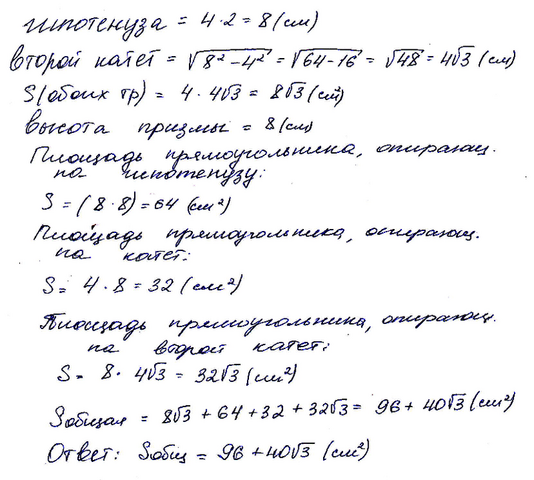 гипотенуза = 4 · 2 = 8 (см)
второй катет = √8² – 4² = √64 – 16 = √48 = 4√3 (см)
S (обоих тр) = 4 · 4√3 = 8√3 (см²)
высота призмы = 8 (см)
Площадь прямоугольника, опирающ.
на гипотенузу:
S = (8 · 8) = 64 (см²)
Площадь прямоугольника, опирающ.
на катет:
S = 4 · 8 = 32 (см²)
Площадь прямоугольника, опирающ.
на второй катет:
S = 8 · 4√3 = 32√3 (см²)
Sобщая = 8√3 + 64 + 32 + 32√3 = 96 + 40√3 (см²)
Ответ: Sобщ = 96 + 40√3 (см²)